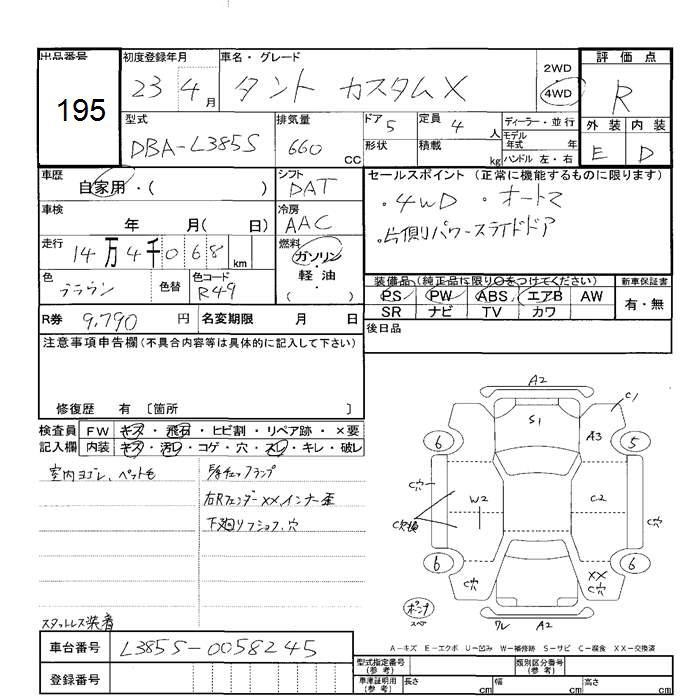 出品番号
195
初度登録年月
23 4月
車名・グレード
タント カスタムX
2WD
4WD
評価点
R
外装 内装
E D
型式
DBA-L385S
排気量
660
CC
ドア 5
形状
定員 4 人
積載 kg
ディーラー・並行
モデル年式 年
ハンドル 左・右
車歴
自家用・( )
シフト
DAT
車検
年 月( 日)
冷房
AAC
走行
14万4千068km
燃料
ガソリン
軽・油
( )
色
ブラウン
色替
色コード
R49
R券 9,790 円
名変期限 月 日
セールスポイント (正常に機能するものに限ります)
・4WD ・オートマ
・片側パワースライドドア
装備品(純正品に限り○をつけてください)
新車保証書
PS PW ABS エアB AW
SR ナビ TV カワ
有・無
後日品
注意事項申告欄(不具合内容等は具体的に記入して下さい)
修復歴 有 〔箇所 〕
検査員記入欄
FW キズ・飛石・ヒビ割・リペア跡・×要
内装 キズ・汚レ・コゲ・穴・スレ・キレ・破レ
室内ヨゴレ、ペット毛
チェックランプ
右Rフェンダー××,インナー歪
下廻りフショク、穴
スタットレス装着
A2
S1
C1
A3
6
5
C穴
W2
C2
C穴
6
6
C穴
××
C穴
ワレ
A2
A-キズ E-エクボ U-凹み W-補修跡 S-サビ C-腐食 XX-交換済
車台番号
L385S-0058245
登録番号
型式指定番号(参考)
類別区分番号(参考)
車庫証明用(参考)
長さ cm
幅 cm
高さ cm